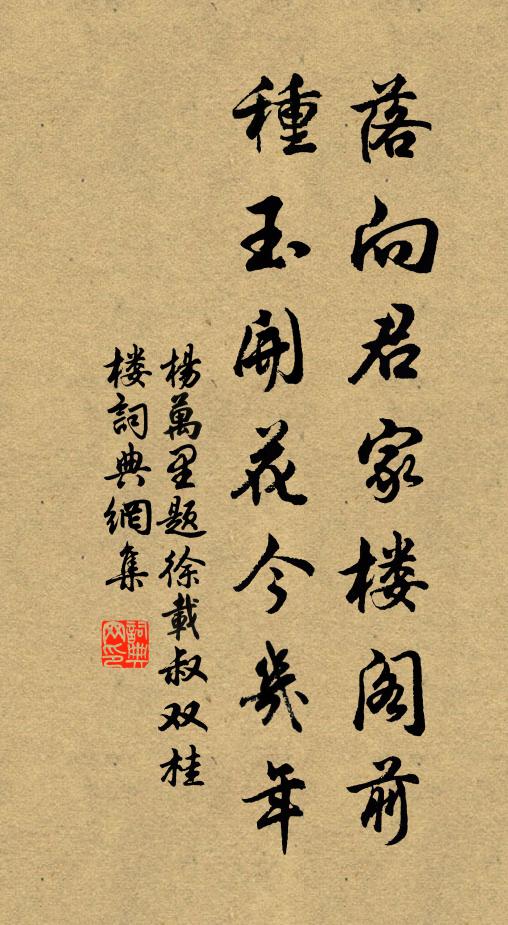 落向君家楼阁前
種玉開花今幾年
楊萬里题徐載叔双桂
楼詞典網集
詞典网印